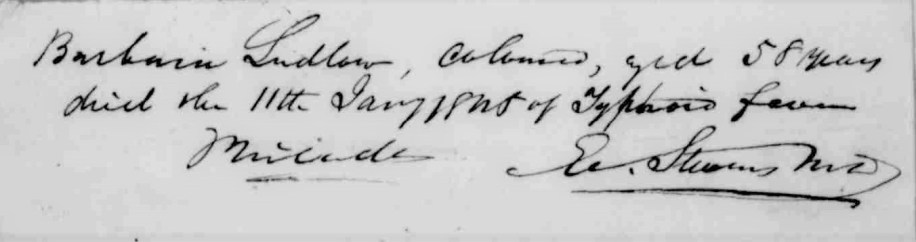 Barbara Ludlow, coloured, aged 58 years
died the 11th Jany 1848 of Typhoid fever
E. Stevens M D